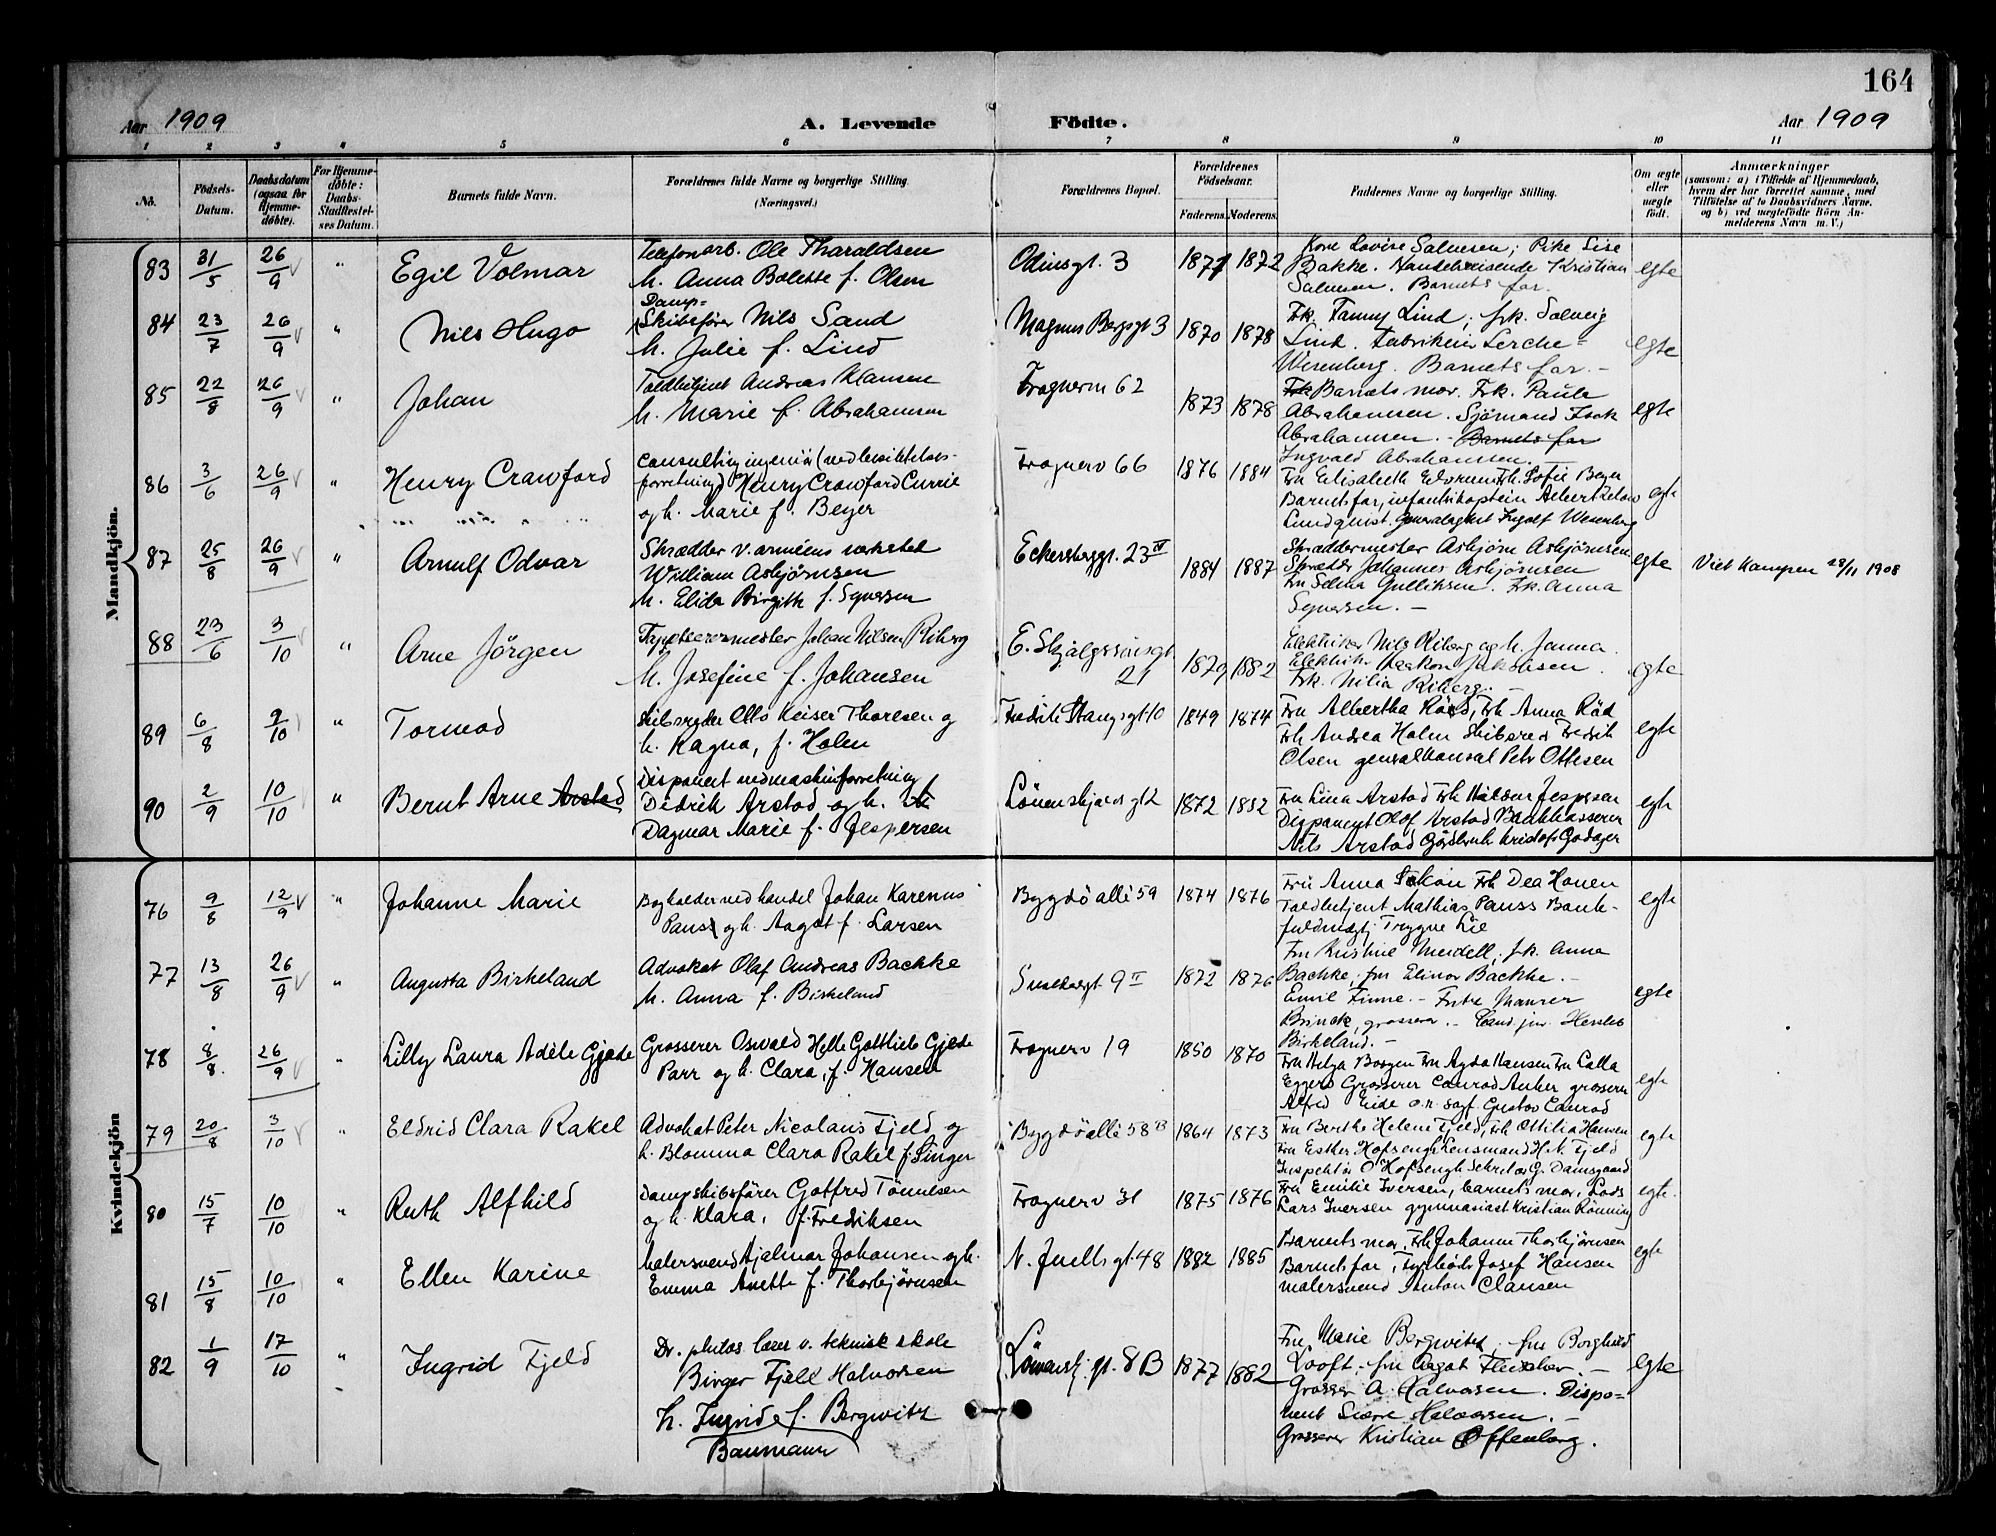 164
Aar 1909
A. Levende
Födte.
Aar 1909
1 2 3 4 5 6 7 8 9 10 11
No.
Födsels-
Datum.
Daabsdatum
(ogsaa for
Hjemme-
døbte).
For Hjemme-
døbte:
Daabs-
Stadfæstel-
ses Datum.
Barnets fulde Navn.
Forældrenes fulde Navne og borgerlige Stilling.
(Næringsvei.)
Forældrenes Bopæl.
Forældrenes
Födselsaar.
Faderens. Moderens.
Faddernes Navne og borgerlige Stilling.
Om ægte
eller
uægte
født.
Anmærkninger
(saasom: a) i Tilfælde af Hjemmedaab,
hvem der har forrettet samme, med
Tilföielse af to Daabsvidners Navne,
og b) ved uægtefödte Börn An-
melderens Navn m. V.)
Mandkjön.
83 31/5 26/9 " Egil Volmar
Telefonarb. Ole Tharaldsen
h. Anna Bolette f. Olsen
Odinsgt. 3 1871 1872
Kone Lovise Salvesen; Pike Lise
Bakke. Handelsreisende Kristian
Salvesen. Barnets far.
egte
84 23/7 26/9 " Nils Hugo
Damp-
Skibsfører Nils Sand
h. Julie f. Lind
Magnus Bergsgt 3 1870 1878
Frk. Fanny Lind; frk. Solveig
Lind. Lerche-
Wesenberg. Barnets far. -
egte
85 22/8 26/9 " Johan
Toldbetjent Andreas Klausen
h. Marie f. Abrahamsen
Fragnerv 62 1873 1878
Frk Barnets mor. Frk. Paula
Abrahamsen. Sjömand Isak
Abrahamsen. - Barnets far
Ingvald Abrahamsen.
egte
86 3/6 26/9 " Henry Crawford
Consulting ingeniör
Henry Crawford Currie
og h. Marie f. Beyer
Fragnerv 66 1876 1884
Fru Elisabeth Frk. Sofie Beyer
Barnets far, infantrikaptein Albert
Lundquist. Generalagent Ingolf Wesenberg
egte
87 25/8 26/9 " Arnulf Odvar
Skrædder v. arméens verksted
William Asbjörnsen
h. Elida Birgitte f. Syversen
Eckersbergsgt. 23 IV 1884 1887
Skræddermester Asbjörn Asbjörnsen
Skrædder Johannes Asbjörnsen
Fru Selma Gulliksen. Frk. Anna
Syversen. -
egte Viet Kampen 28/11 1908
88 23/6 3/10 " Arne Jörgen
Tapetserermester Johan Nilsen Riberg
h. Josefine f. Johansen
E. Skjalgssönsgt
21 1879 1882
Elektriker Nils Riberg og h. Janna.
Elektriker Haakon Jakobsen.
Frk. Nilia Riberg. -
egte
89 6/8 9/10 " Tormod
Skibsreder Otto Keiser Thoresen og
h. Ragna, f. Holm
Fredrik Stangsgt 10 1849 1874
Fru Albertha Röed, Frk Anna Röd
Frk Andrea Holm Skibsred Fredrik
Olsen generalkonsul Petr Ottesen
egte
90 2/9 10/10 " Bernt Arne Arstad
Disponent ved maskinforretning
Didrik Arstad og h.
Dagmar Marie f. Jespersen
Lövenskjoldsgt 2 1872 1882
Fru Lina Arstad Frk Jespersen
Disponent Olaf Arstad Bankkasserer
Nils Arstad Kristofer Godager
egte
Kvindekjön
76 9/8 12/9 " Johanne Marie
Bogholder ved handel Johan Karenus
Pauss og h. Aagot f. Larsen
Bygdö allé 59 1874 1876
Fru Anna Frk Dea Houen
Toldbetjent Mathias Pauss Bank-
fuldmægtig Trygve Lie
egte
77 13/8 26/9 " Augusta Birkeland
Advokat Olaf Andreas Bachke
h. Anna f. Birkeland
9 II 1872 1876
Fru Kristine Meidell, frk. Anna
Bachke, fru Elinor Bachke. -
Emil Finne. - Fritz
grosserer. - Cand. jur.
Birkeland. -
egte
78 8/8 26/9 " Lilly Laura Adèle Gjede
Grosserer Oswald Helle Gottlieb Gjede
Parr og h. Clara, f. Hansen
Fragnerv 19 1850 1870
Fru Helga Borgen Fru Agda Hansen Fru Calla
Eggers Grosserer Conrad Anker grosserer
Alfred Eide o.r. sagf. Gustav Conrad
egte
79 20/8 3/10 " Eldrid Clara Rakel
Advokat Peter Nicolaus Fjeld og
h. Blomma Clara Rakel f. Singer
Bygdö allé 58 B 1864 1873
Fru Berthe Helene Fjeld, Frk Ottilia Hansen
Fru Esther Hofseng Lensmand H.N. Fjeld
Inspektör O Hofsengh Sekretær G. Damsgaard
egte
80 15/7 10/10 " Ruth Alfhild
Dampskibsfører Gotfred Tönnesen
og h. Klara, f. Fredriksen
Fragnerv 31 1875 1876
Fru Emilie Iversen, barnets mor, Lods
Lars Iversen gymnasiast Kristian Rönning
egte.
81 15/8 10/10 " Ellen Karine
Malersvend Hjalmar Johansen og h.
Emma Anette f. Thorbjörnsen
N. Juelsgt. 48 1882 1885
Barnets mor, Frk Johanne Thorbjörnsen
Barnets far, Fyrböder Josef Hansen
malersvend Anton Clausen
egte
82 1/9 17/10 " Ingrid Fjeld
Dr. philos. lærer v. teknisk skole
Birger Fjeld Halvorsen
h. Ingrid f. Bergwitz
Baumann
Lövenskj. gt. 8B 1877 1882
Fru Marie Bergwitz, fru Borghild
Looft, fru Aagot Fleischer, -
Grosser A. Halvorsen. Dispo-
nent Halvorsen. -
Grosserer Kristian Offenberg.
egte